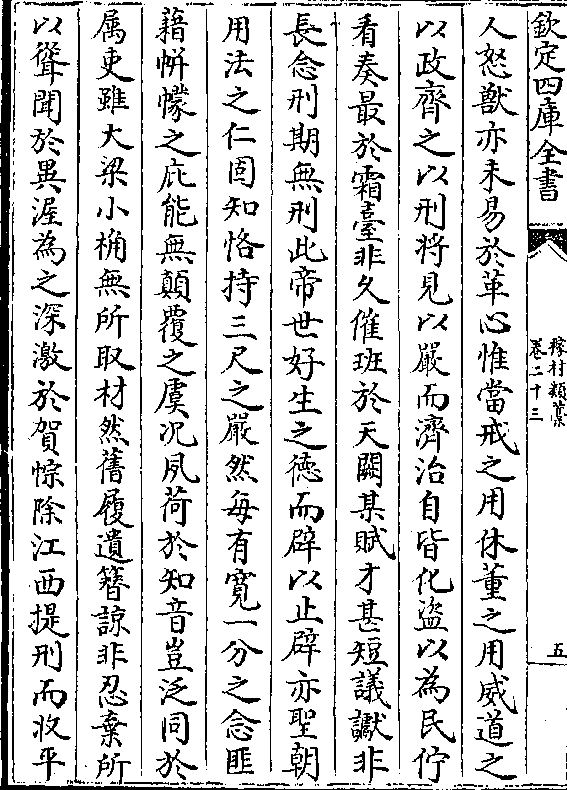 欽定四庫全書
稼村類藁
卷二十三
五
人怒獸亦未易於革心惟當戒之用休董之用威道之
以政齊之以刑将見以嚴而濟治自皆化盗以為民佇
看奏最於霜臺非久催班於天闕某賦才甚短議讞非
長念刑期無刑此帝世好生之徳而辟以止辟亦聖朝
用法之仁固知恪持三尺之嚴然每有寛一分之念匪
藉帡幪之庇能無顛覆之虞况夙荷於知音豈泛同於
属吏雖大梁小桷無所取材然舊履遺簮諒非忍棄所
以聳聞於異渥為之深激於賀悰除江西提刑而收平